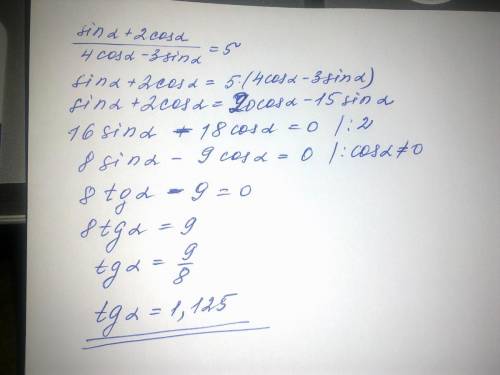 sinα + 2cosα / 4cosα - 3sinα = 5
sinα + 2cosα = 5·(4cosα - 3sinα)
sinα + 2cosα = 20cosα - 15sinα
16sinα - 18cosα = 0 |:2
8sinα - 9cosα = 0 |:cosα≠0
8tgα - 9 = 0
8tgα = 9
tgα = 9/8
tgα = 1,125